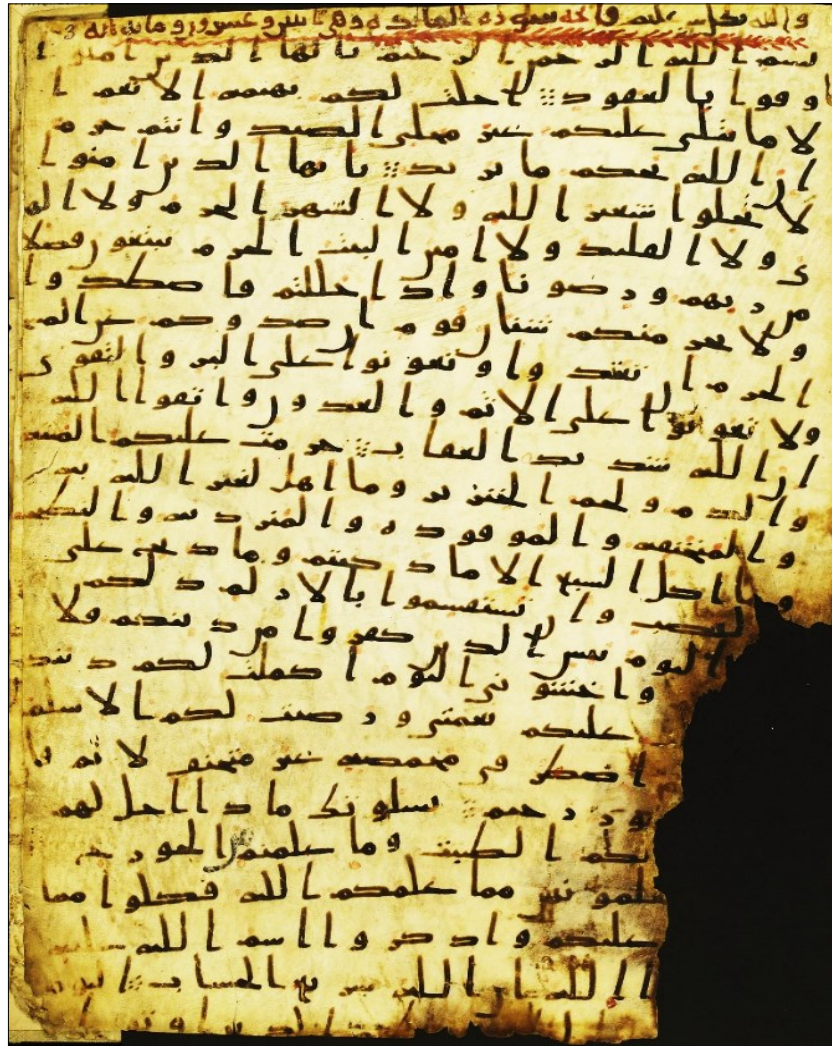 والله بكل شى عليم فاتحه سورة المايدة وهى اثنين وعشرون ومايه ايه
بسم الله الرحمن الرحيم يايها الذين امنوا ا
وفوا بالعقود احلت لكم بهيمة الانعم ا
لا ما يتلى عليكم غير محلى الصيد وانتم حرم
ان الله يحكم ما يريد يايها الذين امنوا
لا تحلوا شعير الله ولا الشهر الحرم ولا الهد
ى ولا القليد ولا امين البيت الحرم يبتغون فضلا
من ربهم ورضونا واذا حللتم فاصطدوا
ولا يجرمنكم شنان قوم ان صدوكم عن المسجد
الحرم ان تعتدوا وتعونوا على البر والتقوى
ولا تعونوا على الاثم والعدون واتقوا الله
ان الله شديد العقاب حرمت عليكم الميتة
والدم ولحم الخنزير وما اهل لغير الله به
والمنخنقة والموقوذة والمتردية والنطيحة
وما اكل السبع الا ما ذكيتم وما ذبح على
النصب وان تستقسموا بالازلم ذلكم
اليوم يئس الذين كفروا من دينكم فلا
واخشون اليوم اكملت لكم دينكم
عليكم نعمتى ورضيت لكم الاسلم
اضطر فى مخمصة غير متجنف لاثم فا
ور رحيم يسلونك ماذا احل لهم
لكم الطيبت وما علمتم من الجورح
تعلمونهن مما علمكم الله فكلوا مما
عليكم واذكروا اسم الله عليه
ا الله ان الله سريع الحساب اليوم